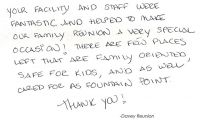 YOUR FACILITY AND STAFF WERE
FANTASTIC AND HELPED TO MAKE
OUR FAMILY REUNION A VERY SPECIAL
OCCASION! THERE ARE FEW PLACES
LEFT THAT ARE FAMILY ORIENTED,
SAFE FOR KIDS, AND AS WELL
CARED FOR AS FOUNTAIN POINT.
THANK YOU!
Reunion